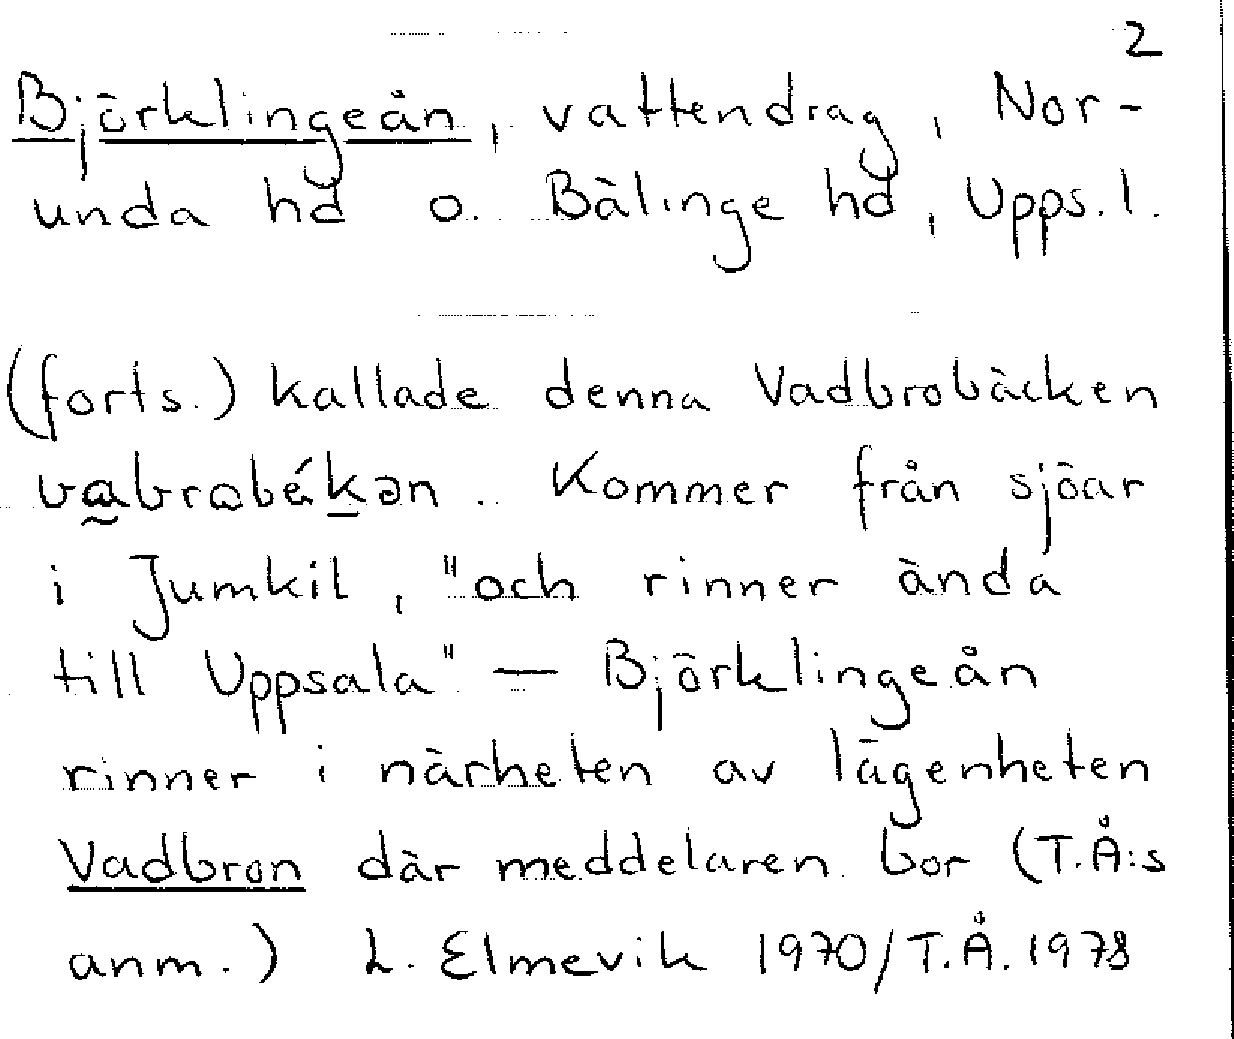 2
Björklingeån, vattendrag, Nor-
unda hd o. Bälinge hd, Upps. l.
(forts.) kallade denna Vadbrobäcken
vabrobékən. Kommer från sjöar
i Jumkil, "och rinner ända
till Uppsala" — Björklingeån
rinner i närheten av lägenheten
Vadbron där meddelaren bor (T.Å:s
anm.) L. Elmevik 1970/T.Å. 1978